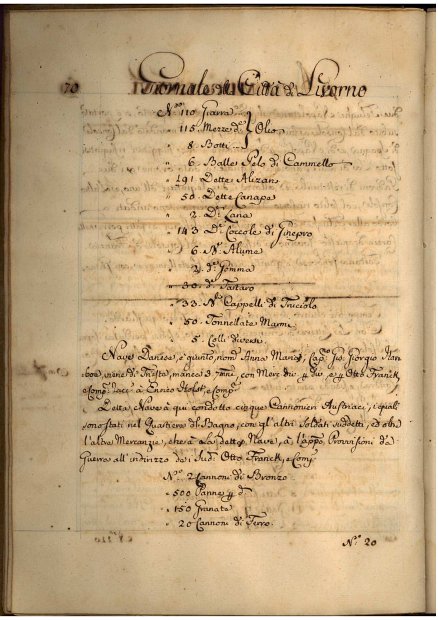 70 Giornale della Città di Livorno
N.ro 110 Giarra
" 115 Mezze d.e Olio
" 8 Botti
" 6 Balle Pelo di Cammello
" 191 Dette Alizari
" 50 Dette Canape
" 2 D.e Lana
" 143 D.e Coccole di Ginepro
" 6 N.o Alume
" 2 d.e Gomma
" 30 d.e Tartaro
" 33 N.o Cappelli di Truciolo
" 50 Tonnellate Marmi
" 5 Colli diversi
Nave Danese, è giunto, nom.a Anna Maria, Cap. Gio. Giorgio
viene di Trieste, manca con Merc. div. p. div. e p. Otto Franck,
e Comp. racc. a Ennco Holst, e Comp.
Detta Nave à qui condotto cinque Cannonieri Austriaci, i quali
sono stati nel Quartiere di Bagno, con gl'altri Soldati suddetti, ed oltre
l'altre Mercanzie, che à La detta Nave, à l'app.o Provvisioni da
Guerra all'indirizzo de' Sud. Otto Franck, e Comp.
N.o 2 Cannoni di Bronzo
" 500 Panne p. d.
" 150 Granate
" 20 Cannoni di Ferro
N.o 20